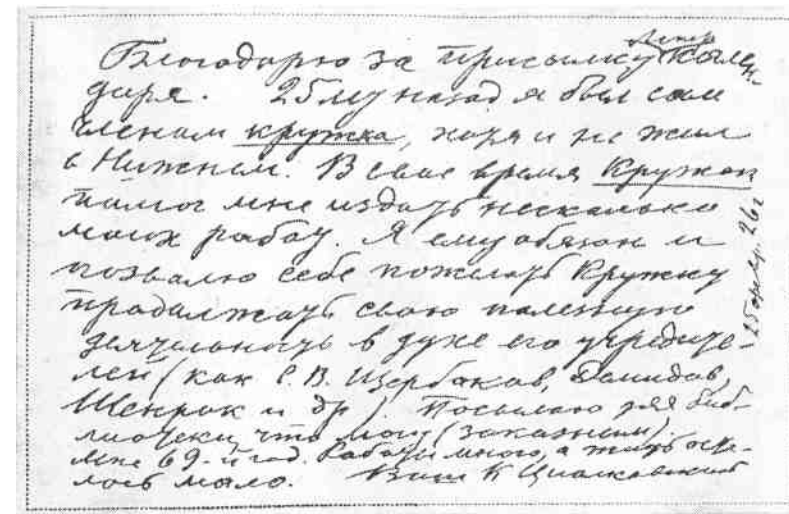 Астр.
Благодарю за присылку Кален-
даря. 25 лет назад я был сам
членом кружка, хотя и не жил
в Нижнем. В свое время Кружок
помог мне издать несколько
моих работ. Я ему обязан и
позволю себе пожелать Кружку
продолжать свою полезную
деятельность в духе его учредите-
лей (как С. В. Щербаков, Демидов,
Шенрок и др.). Посылаю для биб-
лиотеки, что могу (заказным).
Мне 69-й год. Работы много, а жить оста-
лось мало. Ваш К Циолковский
26 г